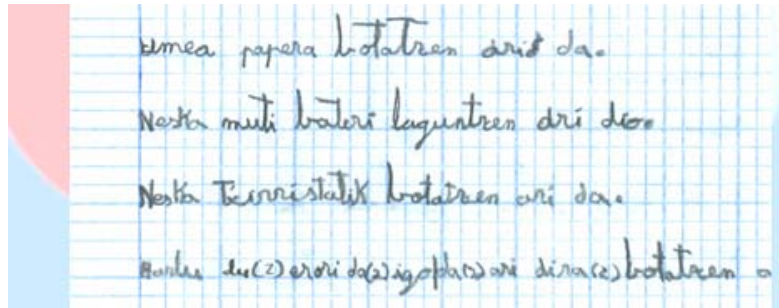 umea papera botatzen ari da.
Neska muti bateri laguntzen ari dio.
Neska Txirristatik botatzen ari da.
lu(2) erori da(2) igo da(2) ari dira(2) botatzen a